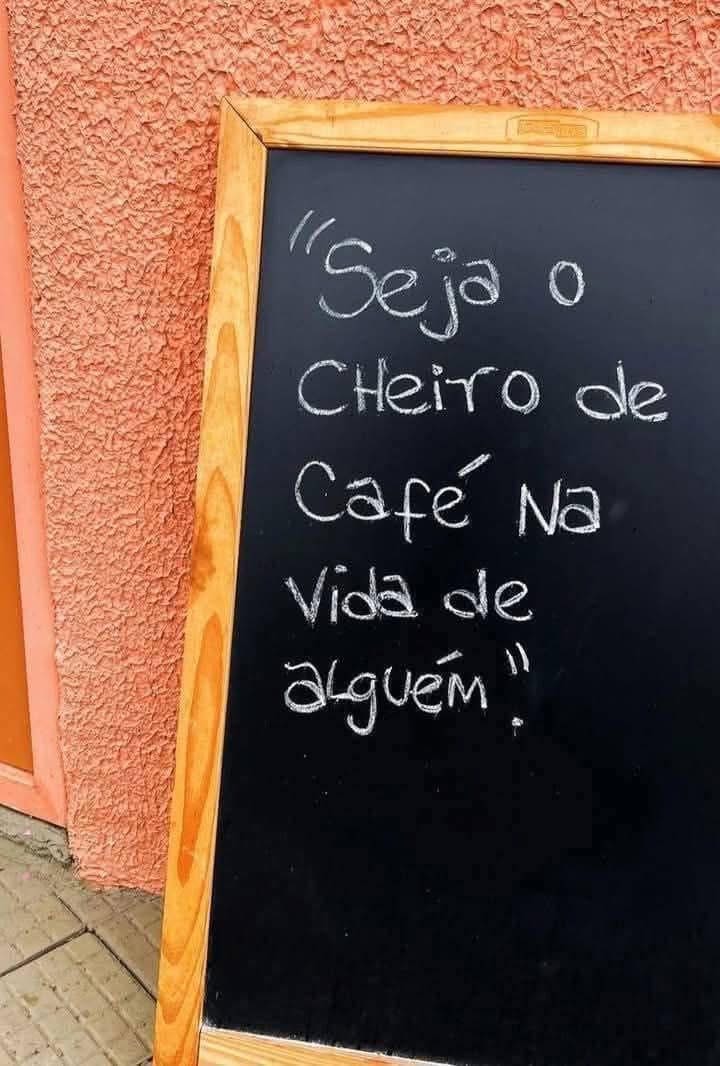 "Seja o
cheiro de
café na
vida de
alguém".